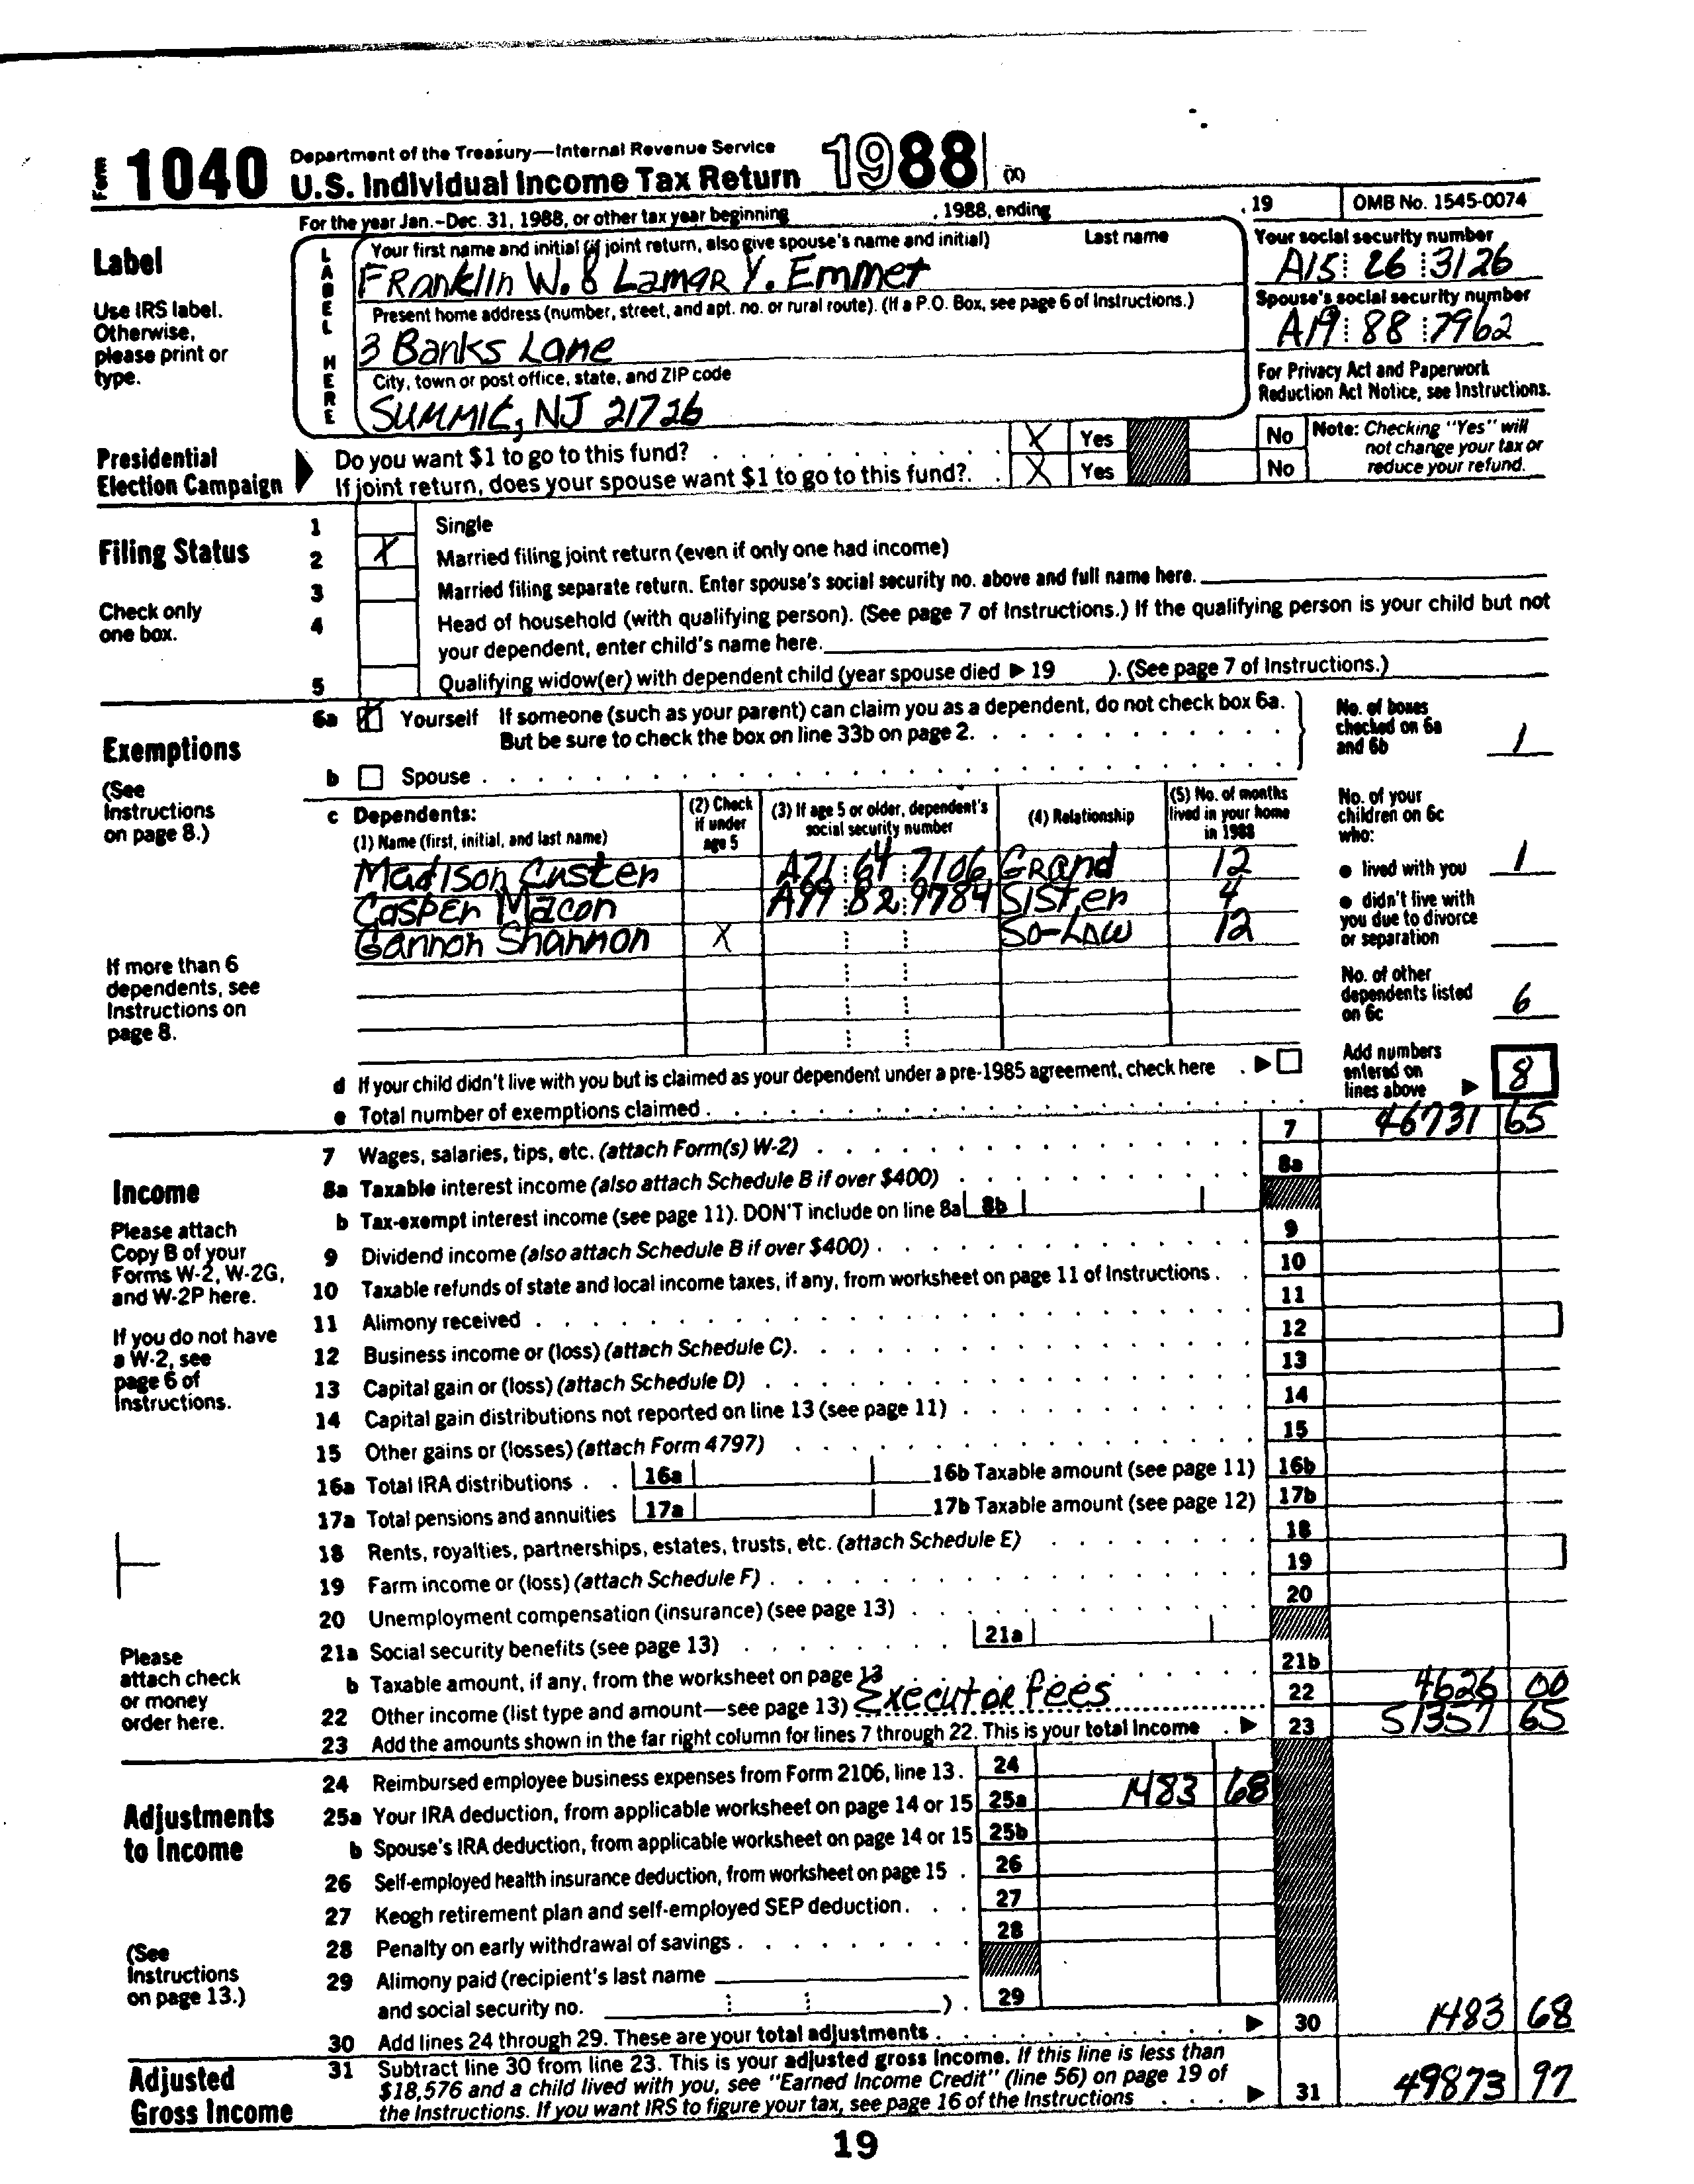 Form 1040 Department of the Treasury—Internal Revenue Service
U.S. Individual Income Tax Return 1988 (X)
For the year Jan.–Dec. 31, 1988, or other tax year beginning , 1988, ending , 19 OMB No. 1545-0074
Label
Use IRS label. Otherwise, please print or type.
LABEL HERE
Your first name and initial (if joint return, also give spouse's name and initial) Last name
Franklin W. & Lamar Y. Emmet
Your social security number
A15 26 3126
Present home address (number, street, and apt. no. or rural route). (If a P.O. Box, see page 6 of Instructions.)
3 Banks Lane
Spouse's social security number
A19 88 7962
City, town or post office, state, and ZIP code
Summit, NJ 21726
For Privacy Act and Paperwork Reduction Act Notice, see Instructions.
Presidential Election Campaign
Do you want $1 to go to this fund? X Yes No
If joint return, does your spouse want $1 to go to this fund? X Yes No
Note: Checking "Yes" will not change your tax or reduce your refund.
Filing Status
Check only one box.
1 Single
2 X Married filing joint return (even if only one had income)
3 Married filing separate return. Enter spouse's social security no. above and full name here.
4 Head of household (with qualifying person). (See page 7 of Instructions.) If the qualifying person is your child but not
your dependent, enter child's name here.
5 Qualifying widow(er) with dependent child (year spouse died ▶ 19 ). (See page 7 of Instructions.)
Exemptions
(See Instructions on page 8.)
6a X Yourself If someone (such as your parent) can claim you as a dependent, do not check box 6a.
But be sure to check the box on line 33b on page 2.
b Spouse
No. of boxes checked on 6a and 6b 1
c Dependents:
(1) Name (first, initial, and last name) (2) Check if under age 5 (3) If age 5 or older, dependent's social security number (4) Relationship (5) No. of months lived in your home in 1988
Madison Custer A71 64 7106 Grand 12
Casper Macon A99 82 9784 Sister 4
Gannon Shannon X So-Law 12
No. of your children on 6c who:
● lived with you 1
● didn't live with you due to divorce or separation
No. of other dependents listed on 6c 6
If more than 6 dependents, see Instructions on page 8.
d If your child didn't live with you but is claimed as your dependent under a pre-1985 agreement, check here ▶
e Total number of exemptions claimed
Add numbers entered on lines above ▶ 8
Income
Please attach Copy B of your Forms W-2, W-2G, and W-2P here.
If you do not have a W-2, see page 6 of Instructions.
Please attach check or money order here.
7 Wages, salaries, tips, etc. (attach Form(s) W-2) 7 46731 65
8a Taxable interest income (also attach Schedule B if over $400) 8a
b Tax-exempt interest income (see page 11). DON'T include on line 8a 8b
9 Dividend income (also attach Schedule B if over $400) 9
10 Taxable refunds of state and local income taxes, if any, from worksheet on page 11 of Instructions 10
11 Alimony received 11
12 Business income or (loss) (attach Schedule C) 12
13 Capital gain or (loss) (attach Schedule D) 13
14 Capital gain distributions not reported on line 13 (see page 11) 14
15 Other gains or (losses) (attach Form 4797) 15
16a Total IRA distributions 16a 16b Taxable amount (see page 11) 16b
17a Total pensions and annuities 17a 17b Taxable amount (see page 12) 17b
18 Rents, royalties, partnerships, estates, trusts, etc. (attach Schedule E) 18
19 Farm income or (loss) (attach Schedule F) 19
20 Unemployment compensation (insurance) (see page 13) 20
21a Social security benefits (see page 13) 21a
b Taxable amount, if any, from the worksheet on page 13 21b
22 Other income (list type and amount—see page 13) Executor fees 22 4626 00
23 Add the amounts shown in the far right column for lines 7 through 22. This is your total income ▶ 23 51357 65
Adjustments to Income
(See Instructions on page 13.)
24 Reimbursed employee business expenses from Form 2106, line 13. 24
25a Your IRA deduction, from applicable worksheet on page 14 or 15 25a 1483 68
b Spouse's IRA deduction, from applicable worksheet on page 14 or 15 25b
26 Self-employed health insurance deduction, from worksheet on page 15 26
27 Keogh retirement plan and self-employed SEP deduction 27
28 Penalty on early withdrawal of savings 28
29 Alimony paid (recipient's last name
and social security no. ) 29
30 Add lines 24 through 29. These are your total adjustments ▶ 30 1483 68
Adjusted Gross Income
31 Subtract line 30 from line 23. This is your adjusted gross income. If this line is less than
$18,576 and a child lived with you, see "Earned Income Credit" (line 56) on page 19 of
the Instructions. If you want IRS to figure your tax, see page 16 of the Instructions ▶ 31 49873 97
19